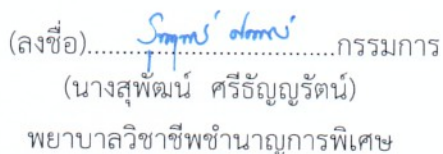 (ลงชื่อ)..................................กรรมการ
(นางสุพัฒน์ ศรีธัญญรัตน์)
พยาบาลวิชาชีพชำนาญการพิเศษ